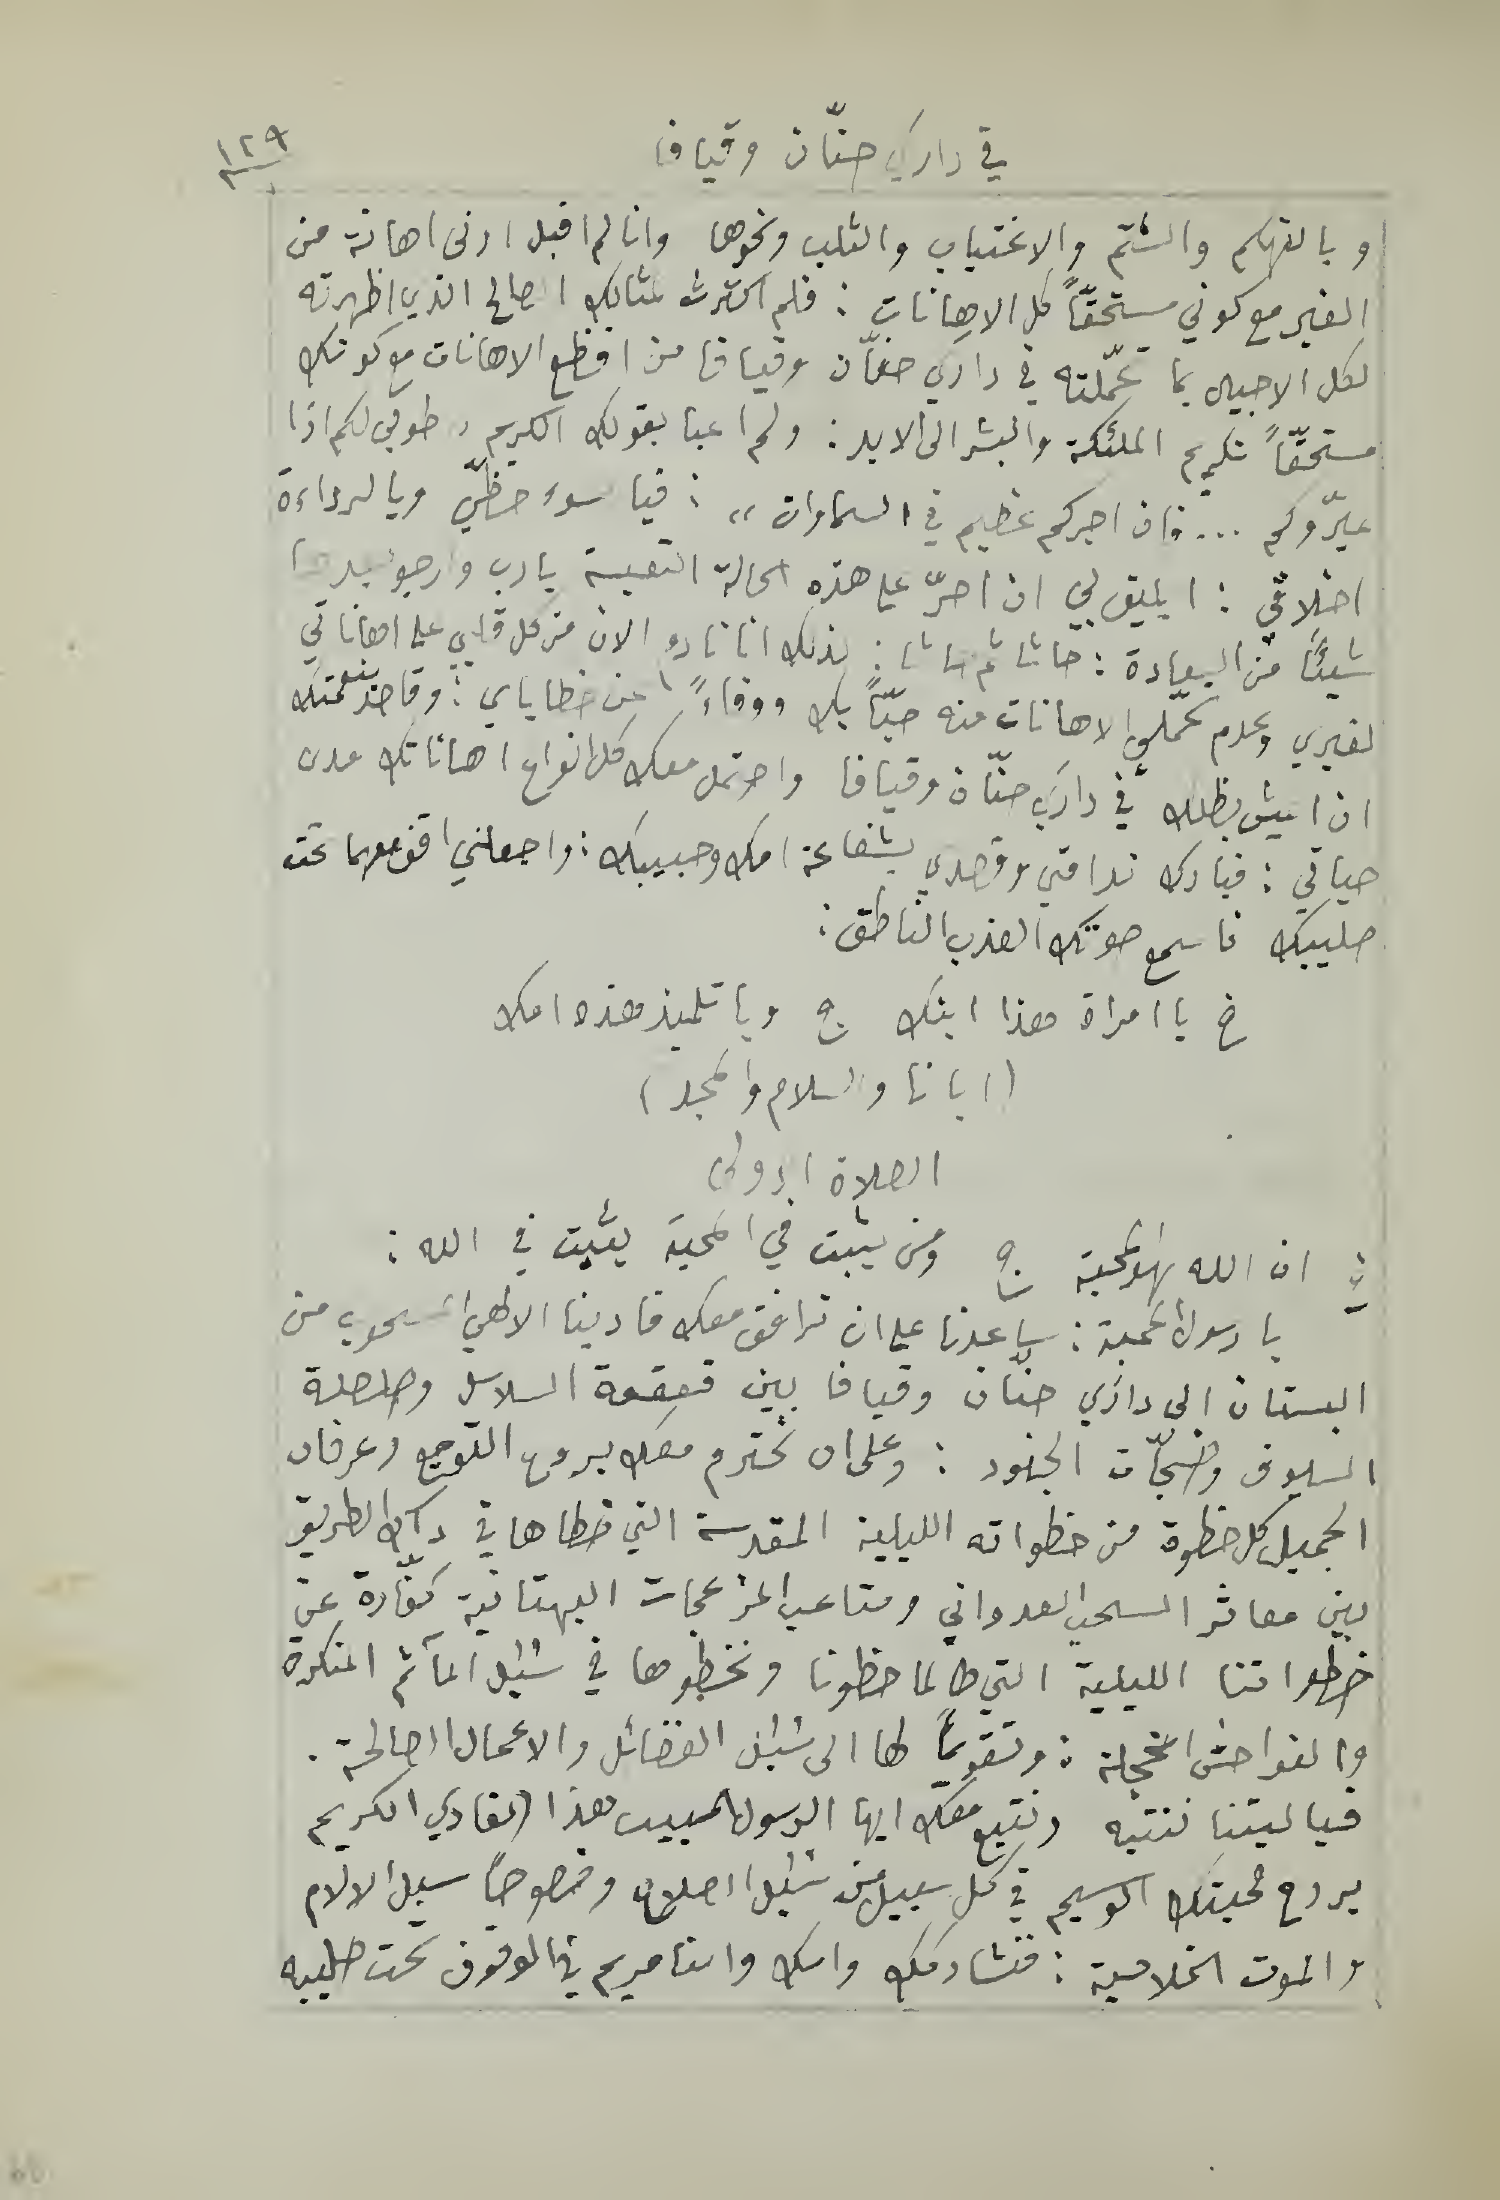 في داركي حنّان وقيافا
١٢٩
وبالتهكم والشتم والاغتياب والثلب ونحوها وانا لم اقبل ادنى اهانة من
الغير مع كوني مستحقّاً كل الاهانات : فلم اكترث لمثالك الصالح الذي اظهرته
لكل الاجيال بما تحمّلته في داري حنّان وقيافا من افظع الاهانات مع كونك
مستحقّاً تكريم الملئكة والبشر الى الابد : ولم اعبا بقولك الكريم ، طوبى لكم اذا
عيّروكم ... فان اجركم عظيم في السماوات ،، : فيا سوء حظّي ويا لرداءة
اخلاقي : ايليق بي ان اصرّ على هذه الحالة التعيسة يا رب وارجو بعدها
شيئًا من السعادة : حاشا ثم حاشا : لذلك انا نادم الان من كل قلبي على اهاناتي
لغيري وعدم تحمّلي الاهانات منه حبّاً بك ووفاءً عن خطاياي : وقاصد بنعمتك
ان اعيش بظلك في داري حنّان وقيافا واحتمل معك كل انواع اهاناتك مدى
حياتي : فبارك ندامتي وقصدي بشفاعة امك وحبيبك : واجعلني اقف معهما تحت
صليبك فاسمع صوتك العذب الناطق :
خ يا امراة هذا ابنك ج ويا تلميذ هذه امك
(ابانا والسلام والمجد)
الصلاة الاولى
خ ان الله لهو المحبة ج ومن يثبت في المحبة يثبت في الله :
يا رسول المحبة : ساعدنا على ان نرافق معك فادينا الالهي المسحوب من
البستان الى داري حنّان وقيافا بين قعقعة السلاسل وصلصلة
السيوف وضجّات الجنود : وعلى ان نحترم معك بروح التوجع وعرفان
الجميل كل خطوة من خطواته الليلية المقدسة التي خطاها في ذاك الطريق
بين معاثر السحب العدواني ومتاعب المزعجات البهتانية كفّارة عن
خطواتنا الليلية التي طالما خطونا ونخطوها في سُبُل المآثم المنكرة
والفواحش المخجلة : وتقويماً لها الى سُبُل الفضائل والاعمال الصالحة .
فيا ليتنا ننتبه ونتبع معك ايها الرسول الحبيب هذا الفادي الكريم
بروح محبتك الوسيم في كل سبيل من سُبُل اصلاح وخصوصاً سبيل الالام
والموت الخلاصية : فنشاركك وامك وامنا مريم في الوقوف تحت صليبه